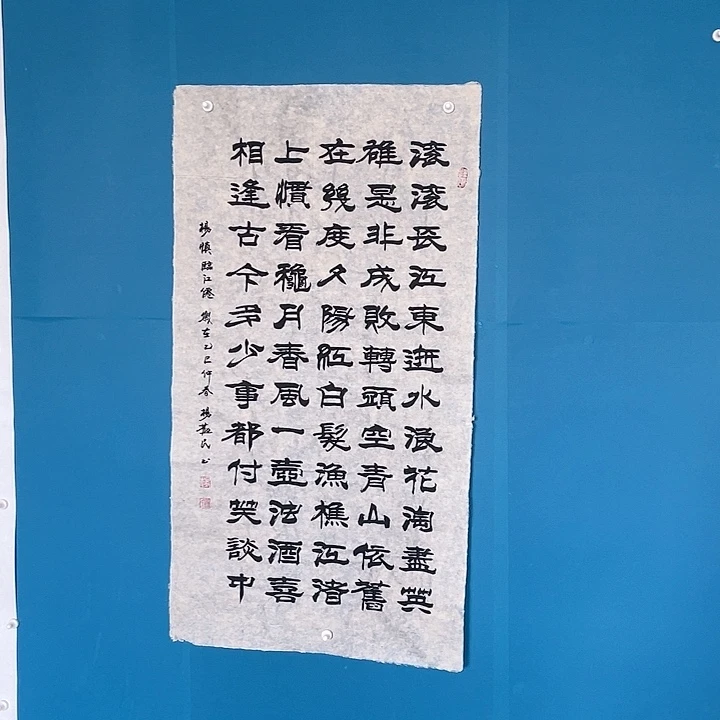 滚滚長江東逝水浪花淘盡英
雄是非成敗轉頭空青山依舊
在幾度夕陽紅白髮漁樵江渚
上慣看穐月春風一壺浊酒喜
相逢古今多少事都付笑談中
楊慎臨江僊 歲在乙巳仲春 楊民书